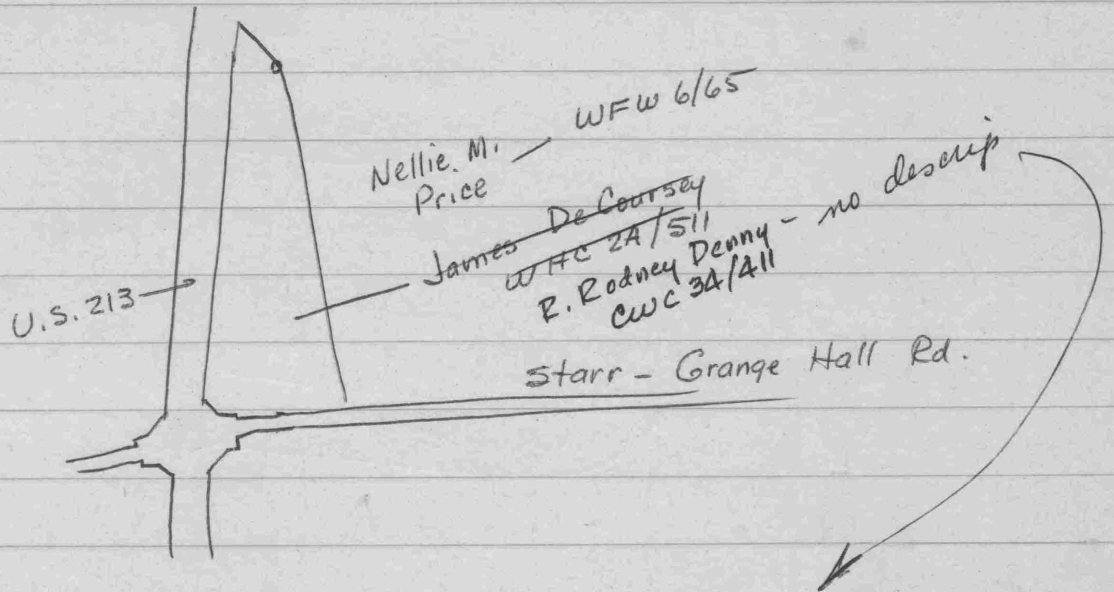 Nellie. M.
Price
WFW 6/65
James De Coursey
WHC 2A/511
R. Rodney Denny - no descrip
CWC 34/411
U.S. 213
Starr - Grange Hall Rd.